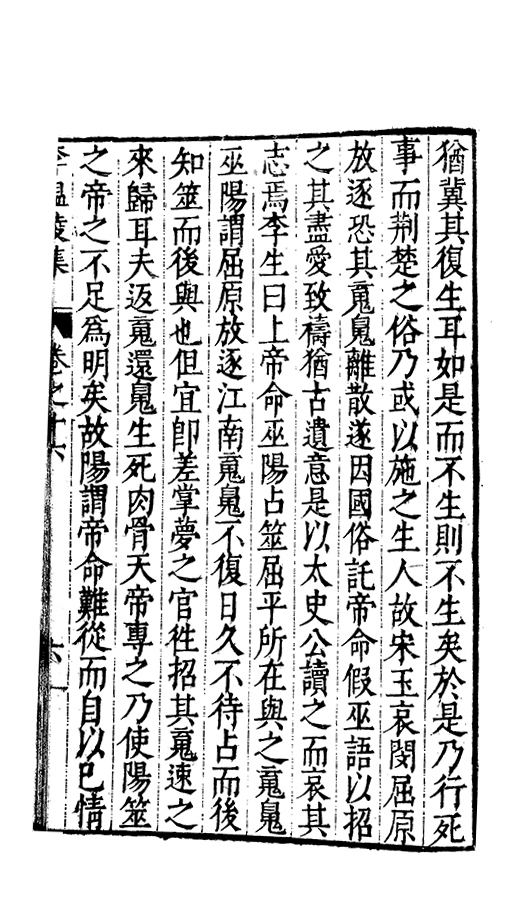 猶冀其復生耳如是而不生則不生矣於是乃行死
事而荆楚之俗乃或以施之生人故宋玉哀閔屈原
放逐恐其䰟鬼離散遂因國俗託帝命假巫語以招
之其盡愛致禱猶古遺意是以太史公讀之而哀其
志焉李生曰上帝命巫陽占筮屈平所在與之䰟鬼
巫陽謂屈原放逐江南䰟鬼不復日久不待占而後
知筮而後與也但宜卽差掌夢之官徃招其䰟速之
來歸耳夫返䰟還鬼生死肉骨天帝專之乃使陽筮
之帝之不足爲明矣故陽謂帝命難從而自以已情
李温陵集
卷之十六
六